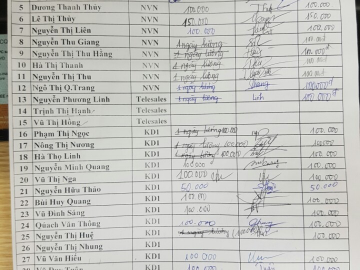 5 Dương Thanh Thủy NVN 100.000 100.000
6 Lê Thị Thúy NVN 150.000 150.000
7 Nguyễn Thị Liên NVN 100.000 100.000
8 Nguyễn Thu Giang NVN 1 ngày lương
9 Nguyễn Thị Thu Hằng NVN 1 ngày lương
10 Hà Thị Thanh NVN 1 ngày lương
11 Nguyễn Thị Thu NVN 1 ngày lương
12 Ngô Thị Q.Trang NVN 1 ngày lương
13 Nguyễn Phương Linh Telesales 1 ngày lương Linh 100.000đ
14 Trịnh Thị Hạnh Telesales
15 Vũ Thị Hồng Telesales
16 Phạm Thị Ngọc KD1 1 ngày lương 100.000
17 Nông Thị Nương KD1 1 ngày lương 100.000
18 Hà Thọ Linh KD1 1 ngày lương 100.000
19 Nguyễn Minh Quang KD1 100.000 100.000
20 Vũ Thị Nga KD1 100.000 100.000
21 Nguyễn Hữu Thảo KD1 50.000 50.000
22 Bùi Huy Quang KD1 100.000 100.000
23 Vũ Đình Sáng KD1 100.000 100.000
24 Quách Văn Thông KD1 100.000 100.000
25 Nguyễn Thị Huệ KD1 1 ngày lương 100.000
26 Nguyễn Thị Nhung KD1
27 Vũ Văn Hiếu KD1 100.000 100.000